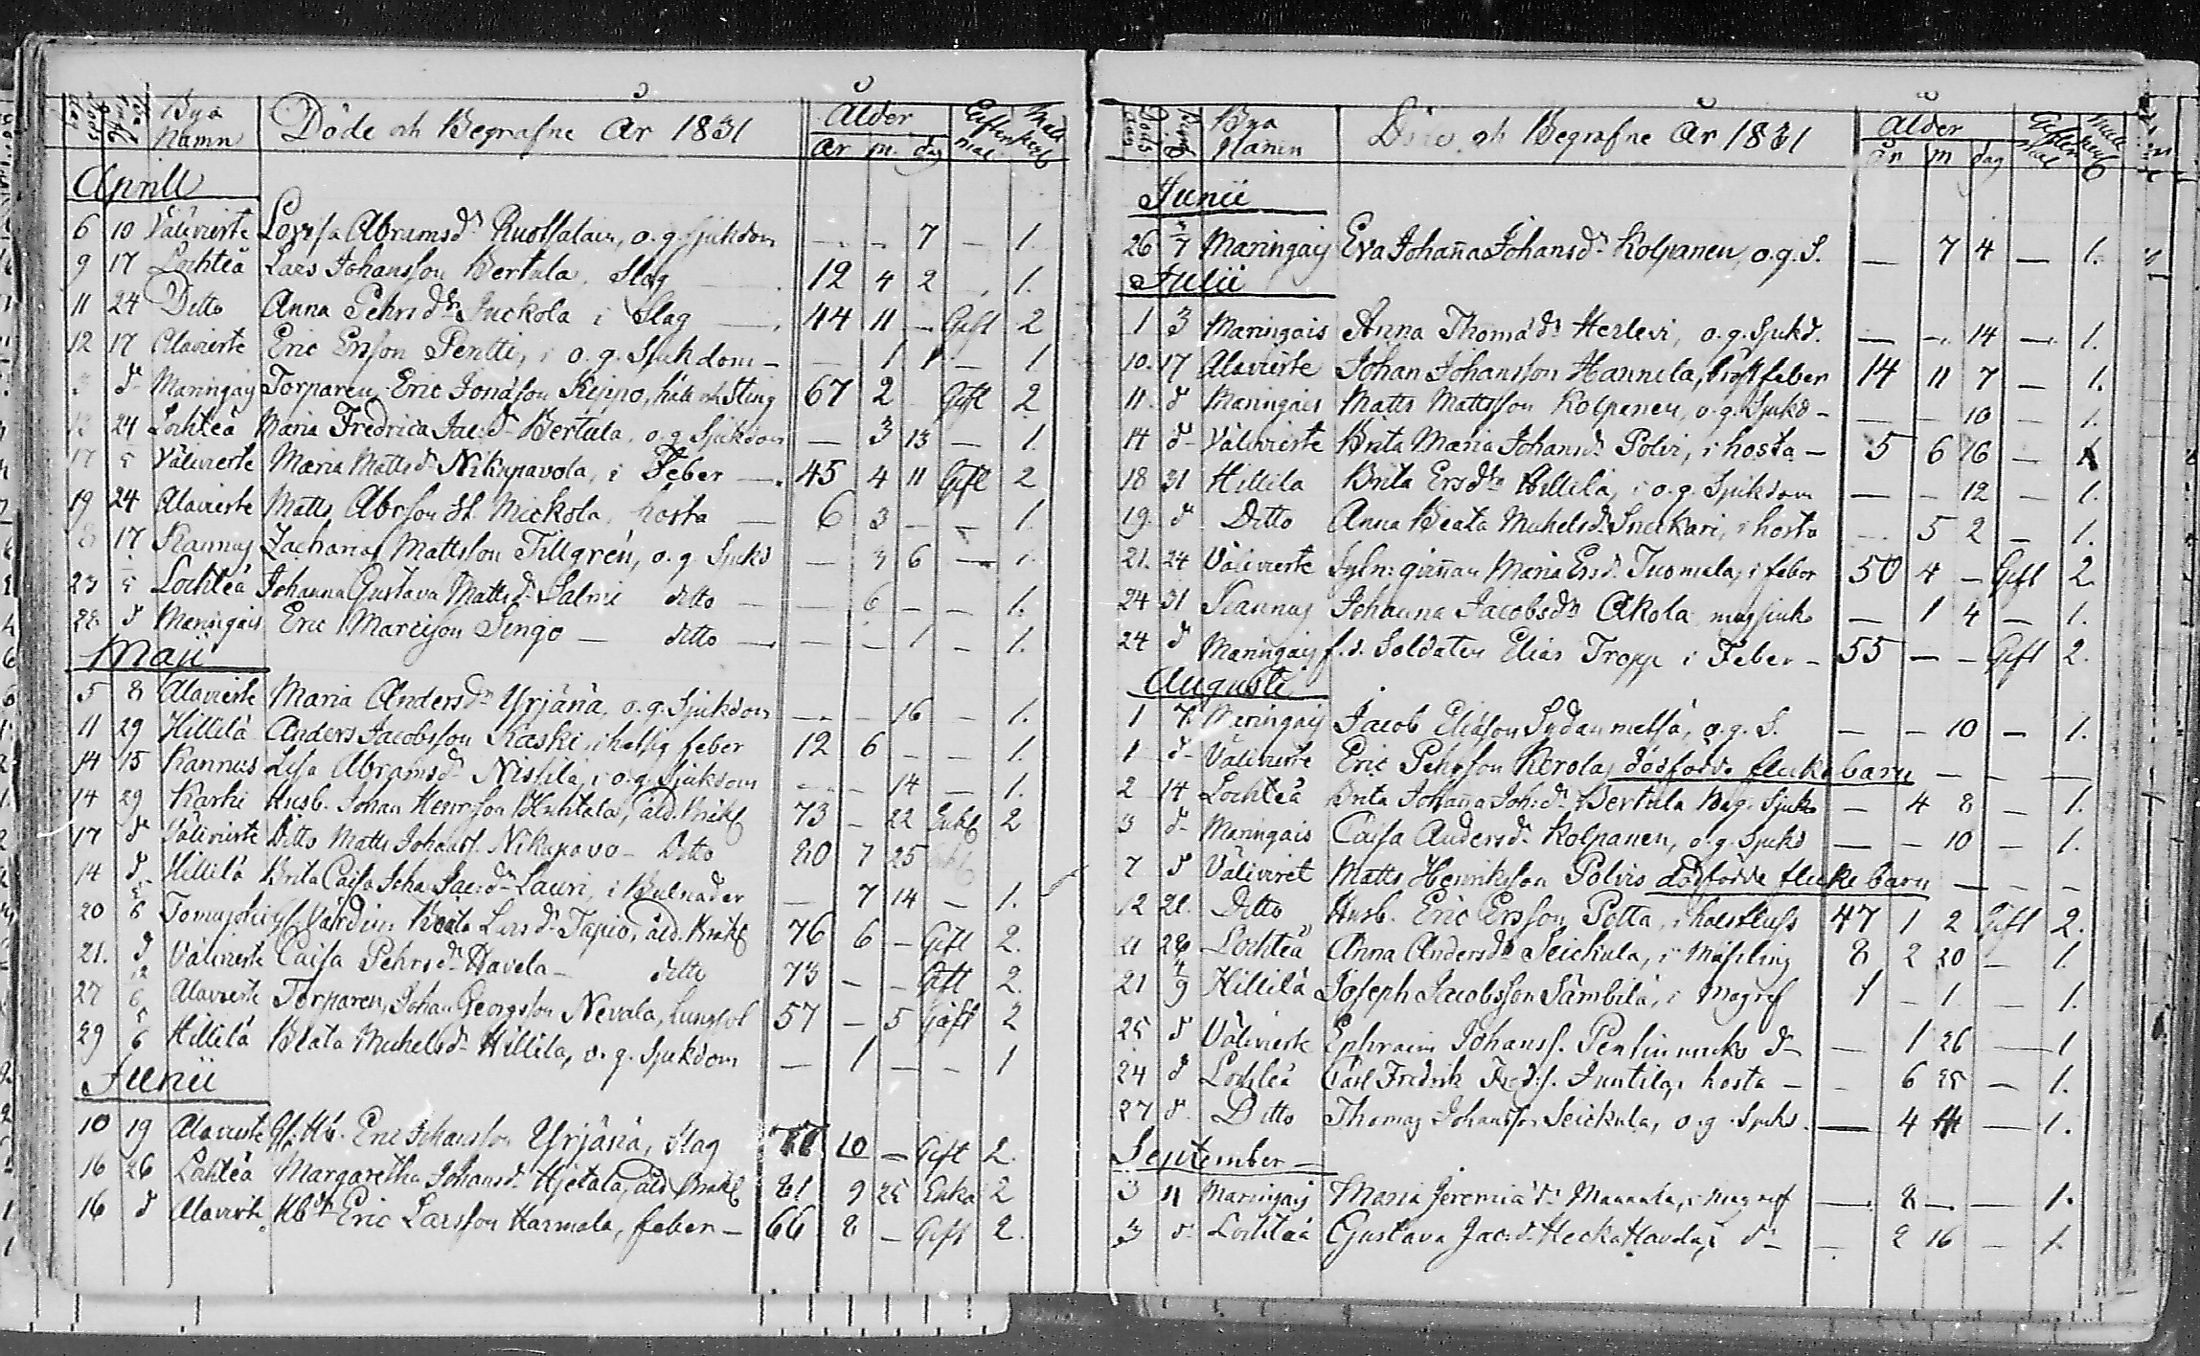 Bya Namn Döde och Begrafne År 1831 Ålder Giftermål
År m. dag
Aprill
6 10 Välivierte Lovisa Abramsdr Ruotsalain, o.g. sjukdom — — 7 — 1.
9 17 Lochteå Lars Johansson Bertula, Slag 12 4 2 1.
11 24 Ditto Anna Pehrsdr Juckola i Slag 44 11 — Gift 2
12 17 Alavierte Eric Ersson Pentti, i o.g. Sjukdom — — 1 1 — 1
d Maringais Torparen Eric Jonasson Kippo, håll och Sting 67 2 Gift 2
12 24 Lochteå Maria Fredrica Jac:dr Bertula, o.g. Sjukdom — 3 13 — 1.
17 Välivierte Maria Mattsdr Nikupavola, i Feber 45 4 11 Gift 2
19 24 Alavierte Matts Abrsson Mickola, hosta — 6 3 — — 1.
17 Kannus Zacharias Mattsson Tillgrén, o.g. Sjukd — 3 6 — 1.
23 5 Lochteå Johanna Gustava Mattsdr Salmi ditto — — 6 — — 1.
28 d Maringais Eric Marcisson Singo — ditto — — — 1 — 1.
Maji
5 8 Alavierte Maria Andersdr Yrjänä, o.g. Sjukdom — — 16 — 1.
11 29 Hillilä Anders Jacobsson Kaski, i hetsig feber 12 6 — — 1.
14 15 Kannus Lisa Abramsdr Nissilä, i o.g. Sjukdom — — 14 — 1.
14 29 Karhi Husb. Johan Henrsson Huhtala, åld. bräckl 73 — 22 Enkl 2
17 d Välivierte Ditto Matts Johanss. Nikupavo — Ditto 80 7 25
14 d Hillilä Brita Caisa Joha Jac:dr Lauri, i Bulnader — 7 14 — 1.
20 5/6 Tomujoki Värdin: Beata Larsdr Tapio, åld. bräckl 76 6 — Gift 2.
21. d Välivierte Caisa Pehrsdr Havela — ditto 73 — — Gift 2.
27 12/6 Alavierte Torparen, Johan Georgsson Nevala, Lungsot 57 — 5 Gift 2
29 5/6 Hillilä Beata Michelsdr Hillilä, o.g. Sjukdom — 1 — — 1
Junii
10 19 Alavierte Hb. Eric Johansson Yrjänä, Slag 10 — Gift 2.
16 26 Lochteå Margaretha Johansdr Hjetala, åld. bräckl 81 9 25 Enka 2
16 d Alavierte Hbdn Eric Larsson Harmala, feber — 66 8 — Gift 2.
Bya Namn Döde och Begrafne År 1831 Ålder Giftermål
År m dag
Junii
26 3/7 Maringais Eva Johanna Johansdr Kolpanen, o.g. S. — 7 4 — 1.
Julii
1 3 Maringais Anna Thomædr Herlevi, o.g. Sjukd. — — 14 — 1.
10. 17 Alavierte Johan Johansson Hannila, bröstfeber 14 11 7 — 1.
11. d Maringais Matts Mattsson Kolpanen, o.g. Sjukd — — — 10 — 1.
14 d Välivierte Brita Maria Johansdr Polvi, i hosta — 5 6 16 — 1
18 31 Hillilä Brita Ersdtr Hillilä, i o.g. Sjukdom — — 12 — 1.
19. d Ditto Anna Beata Michelsdr Snickari, i hosta 5 2 — 1.
21. 24 Välivierte Maria Ersd. Tuomala, i feber 50 4 — Gift 2.
24 31 Kannus Johanna Jacobsdr Akola magsjuk — 1 4 — 1.
24 d Maringais f.d. Soldaten Elias Tropp i Feber — 55 — — Gift 2.
Augusti
1 7. Maringais Jacob Eliasson Sydänmetsä, o.g. S. — — 10 — 1.
1 d Välivierte Eric Pehrsson Kerolas dödfödde flicke barn — — —
2 14 Lochteå Brita Johanna Joh:dr Bertula Mag. Sjuk — 4 8 — 1.
3 d Maringais Caisa Andersdr Kolpanen, o.g. Sjukd — — 10 — 1.
7 d Väliviert Matts Henriksson Polvis dödfödde flicke barn — — —
12 21. Ditto Husb. Eric Ersson Potta, i halsfluss 47 1 2 Gift 2.
21 28 Lochteå Anna Andersdr Seickula, i Mässling 8 2 20 — 1.
21 4/9 Hillilä Joseph Jacobsson Särmbilä, i Magref 1 — 1 — 1.
25 d Välivierte Ephraim Johanss. Pentinmicko d — — 1 26 — 1
24 d Lochteå Carl Fredrik Fredr:s. Juntila, i hosta — 6 25 — 1.
27 d Ditto Thomas Johansson Seickula, o.g. Sjukd. — 4 14 — 1.
September —
3 11 Maringais Maria Jeremiædr Mannela, i magref — 8 — — 1.
3 d Lochteå Gustava Jac:dr Heckahavela, d — — 2 16 — 1.